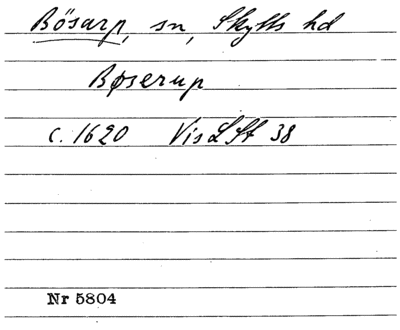 Bösarp, sn, Skytts hd
Bøserup
c. 1620 Vis L St 38
Nr 5804